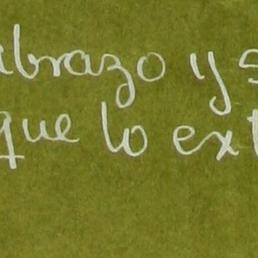 abrazo y s
que lo ext